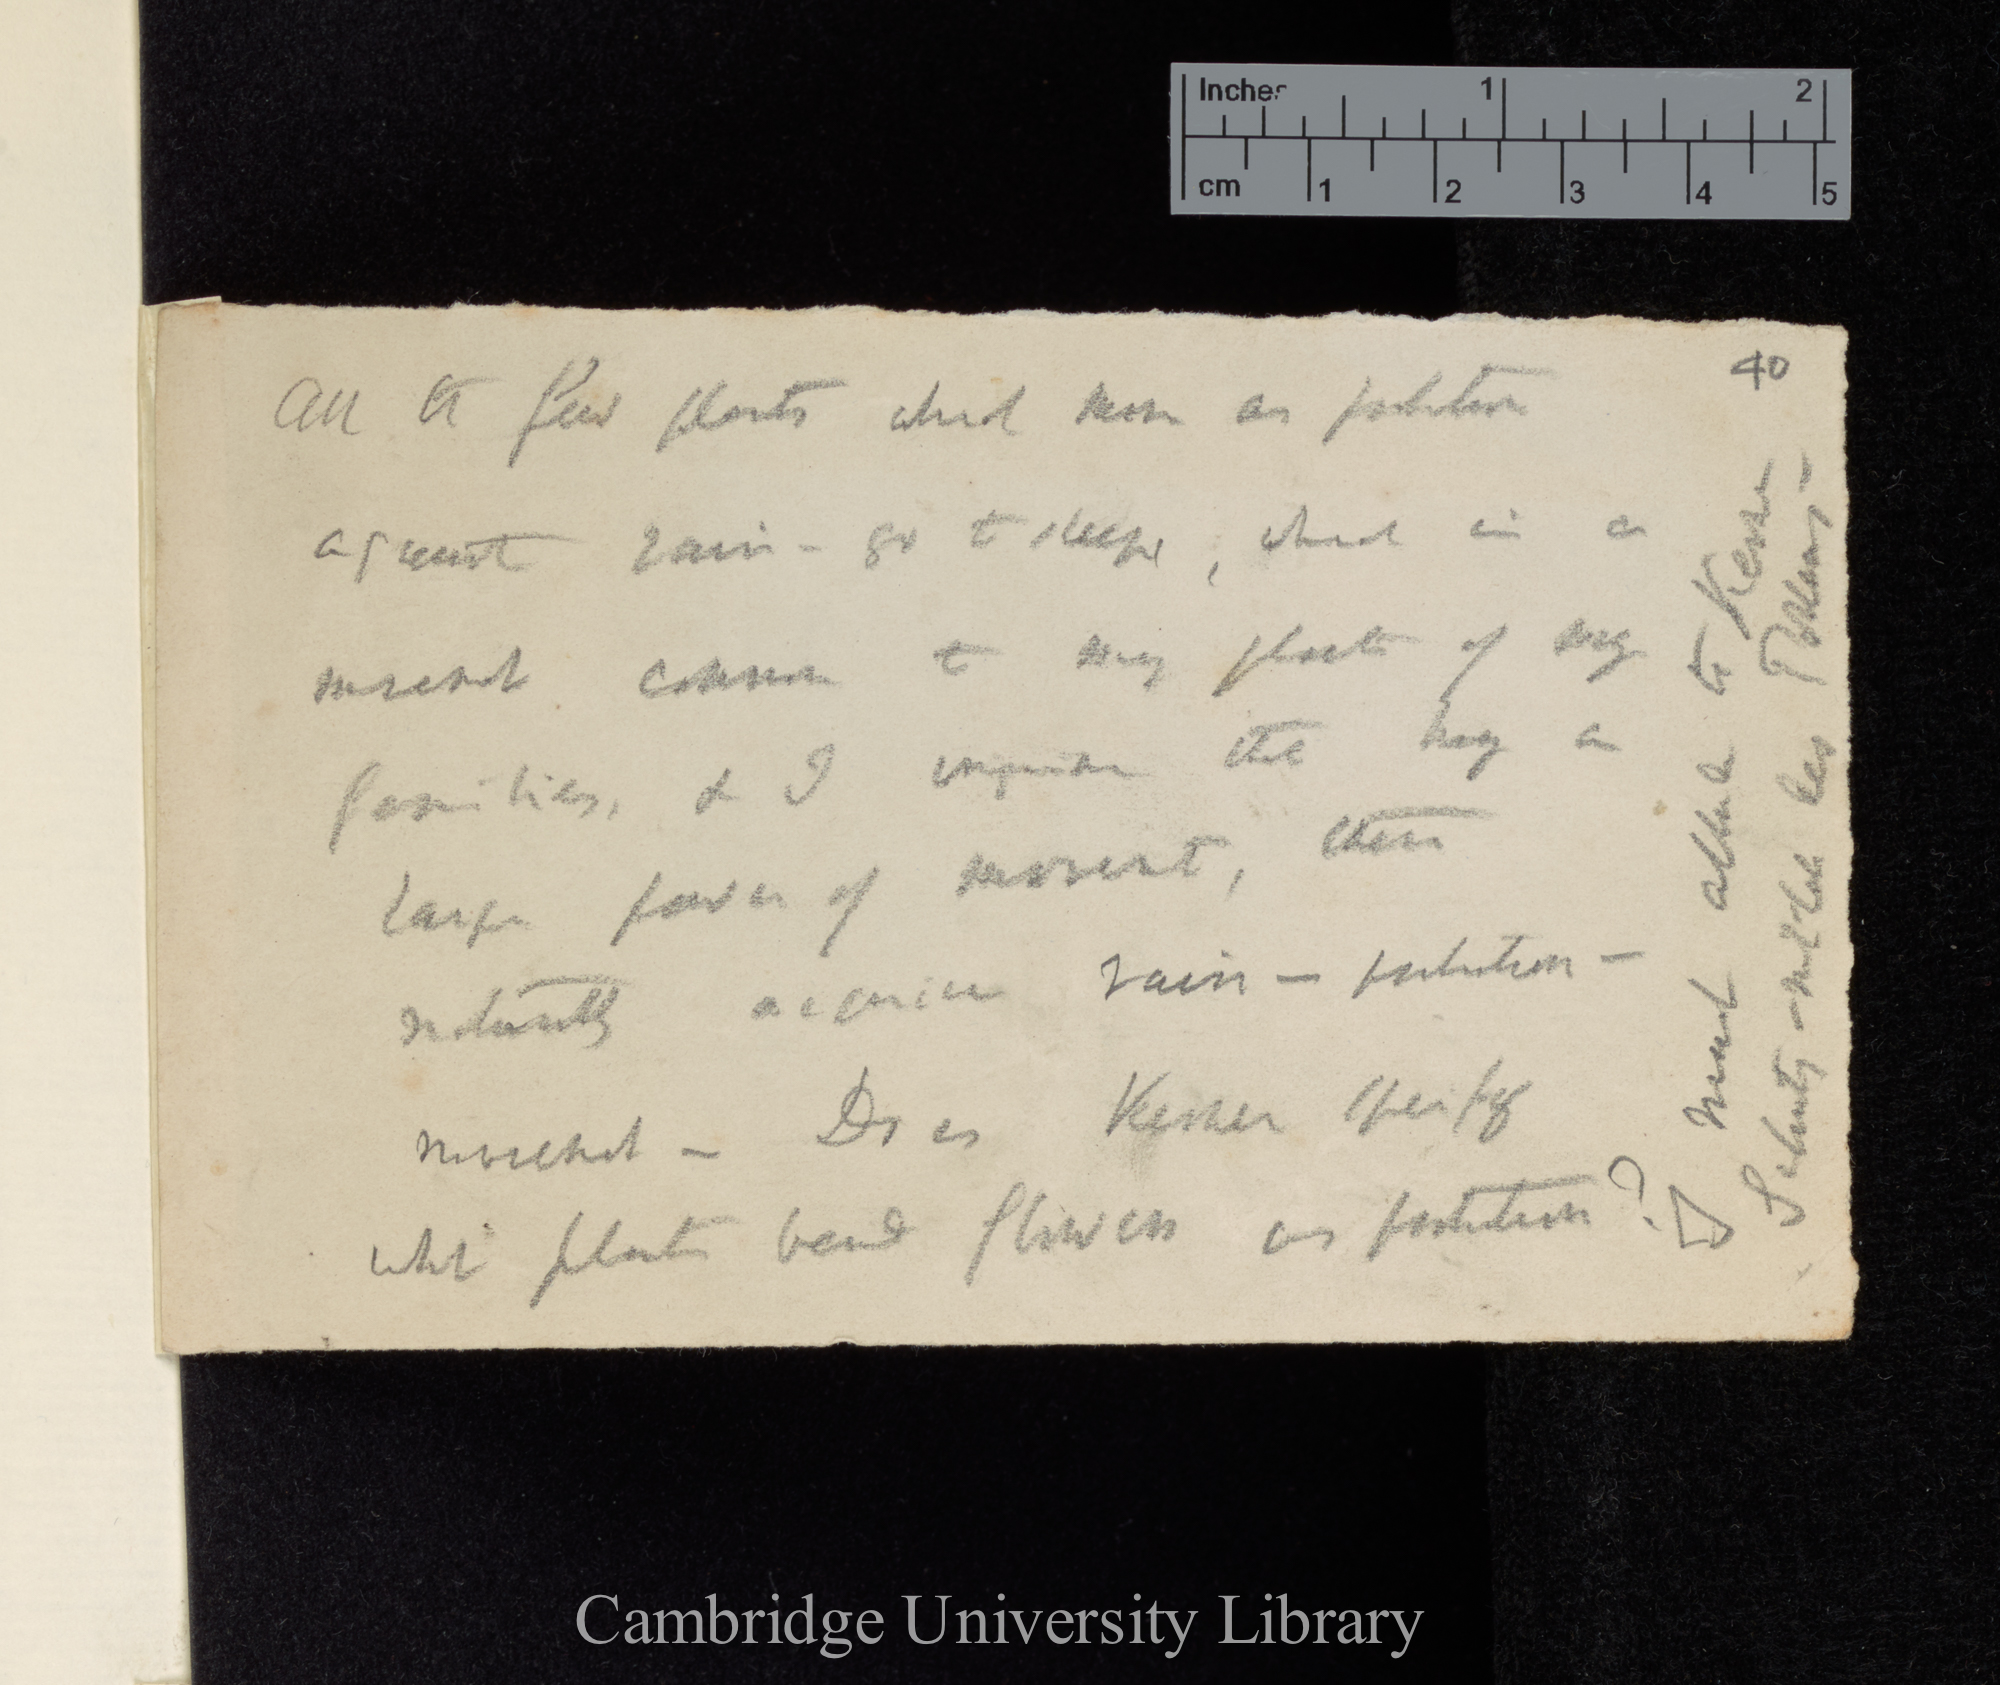 Inches 1 2
cm 1 2 3 4 5
40
All the few plants which move as protection
against rain – go to sleep, which is a
movement common to many plants of many
families, & I suppose that having a
large power of movement, them
naturally acquire rain – protection –
movement – Does Kerner specify
what plants bend flowers as protection?
I must allude to Kerner
Cambridge University Library